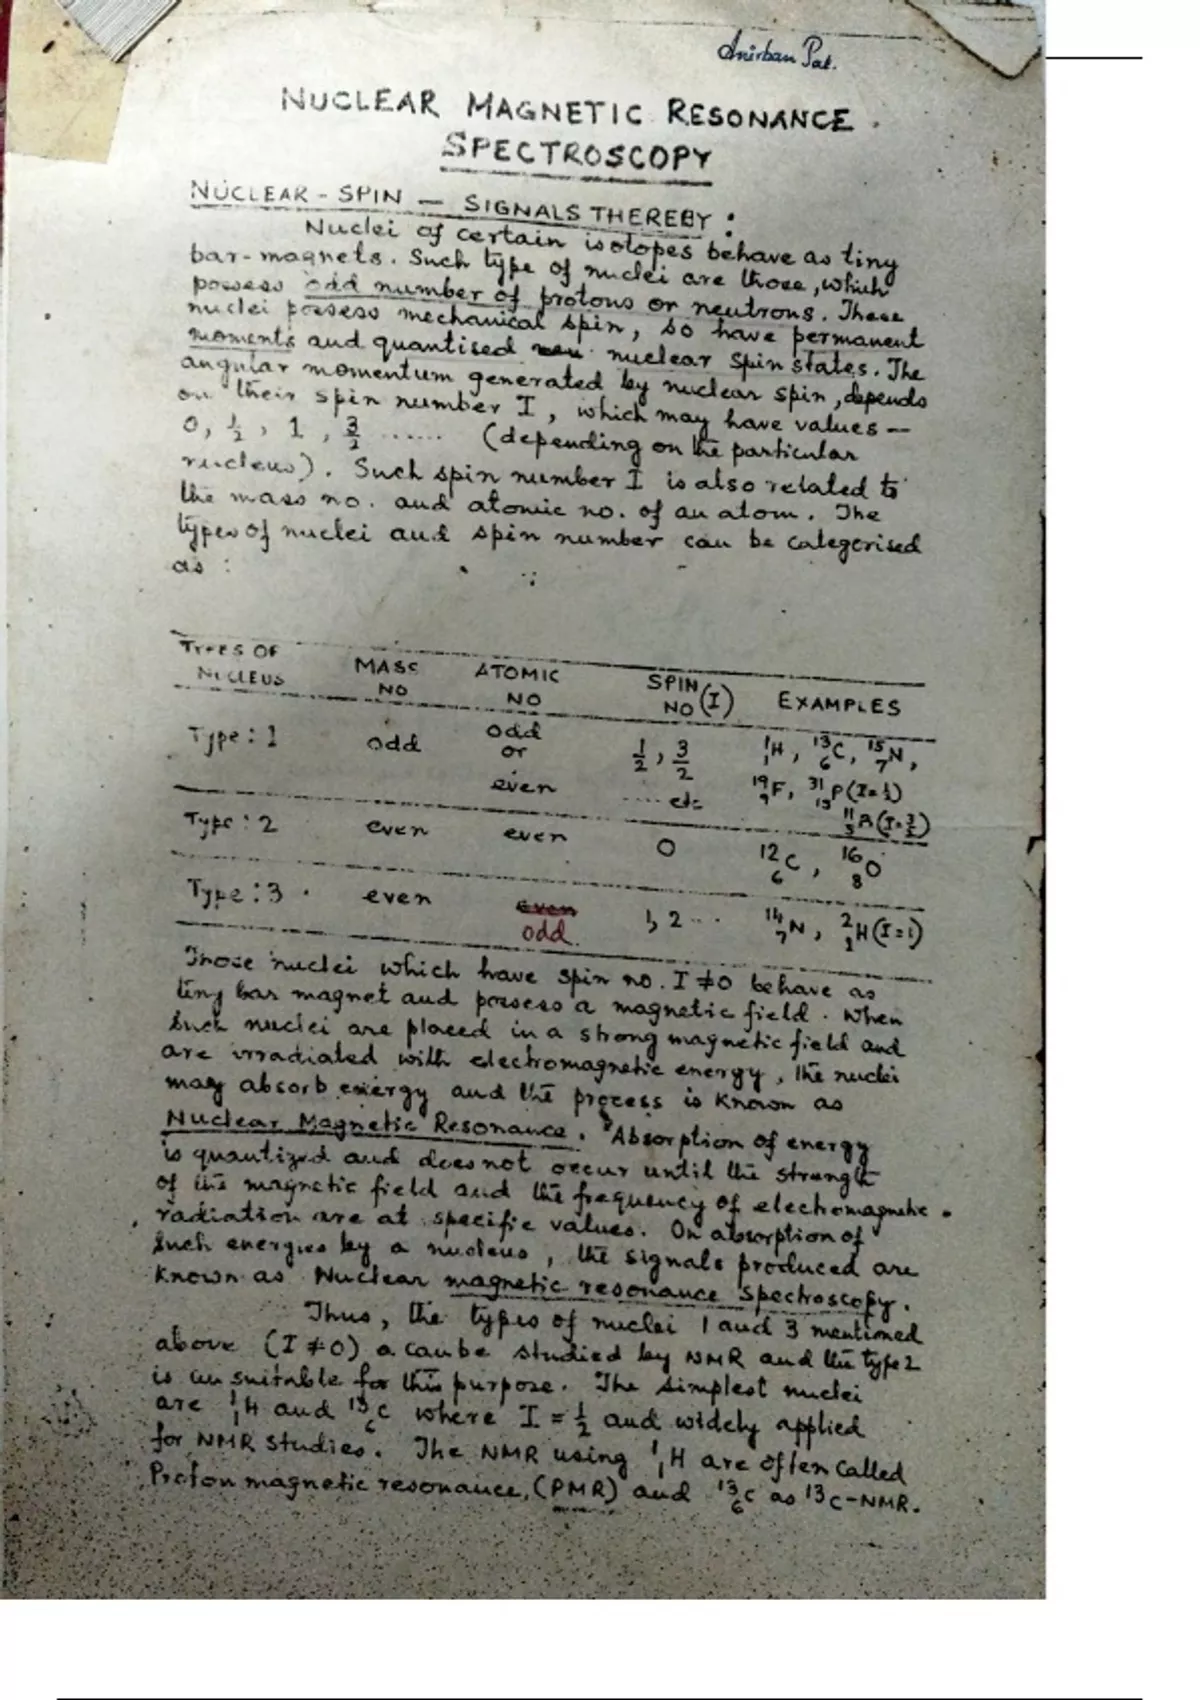 Anirban Pal.
NUCLEAR MAGNETIC RESONANCE
SPECTROSCOPY
NUCLEAR - SPIN — SIGNALS THEREBY :
Nuclei of certain isotopes behave as tiny
bar-magnets. Such type of nuclei are those, which
possess odd number of protons or neutrons. These
nuclei possess mechanical spin, so have permanent
moments and quantised nuclear spin states. The
angular momentum generated by nuclear spin, depends
on their spin number I, which may have values —
0, ½, 1, 3/2 ...... (depending on the particular
nucleus). Such spin number I is also related to
the mass no. and atomic no. of an atom. The
types of nuclei and spin number can be categorised
as :
TYPES OF NUCLEUS MASS NO ATOMIC NO SPIN NO (I) EXAMPLES
Type : 1 odd odd or even ½, 3/2 .... etc ¹₁H, ¹³₆C, ¹⁵₇N,
¹⁹₉F, ³¹₁₅P (I=½)
¹¹₅B (I=3/2)
Type : 2 even even 0 ¹²₆C, ¹⁶₈O
Type : 3 even even odd 1, 2 ... ¹⁴₇N, ²₁H (I=1)
Those nuclei which have spin no. I ≠ 0 behave as
tiny bar magnet and possess a magnetic field. When
such nuclei are placed in a strong magnetic field and
are irradiated with electromagnetic energy, the nuclei
may absorb energy and the process is known as
Nuclear Magnetic Resonance. Absorption of energy
is quantized and does not occur until the strength
of the magnetic field and the frequency of electromagnetic
radiation are at specific values. On absorption of
such energies by a nucleus, the signals produced are
known as Nuclear magnetic resonance spectroscopy.
Thus, the types of nuclei 1 and 3 mentioned
above (I ≠ 0) a can be studied by NMR and the type 2
is un suitable for this purpose. The simplest nuclei
are ¹₁H and ¹³₆C where I = ½ and widely applied
for NMR studies. The NMR using ¹₁H are often called
Proton magnetic resonance, (PMR) and ¹³₆C as ¹³C-NMR.